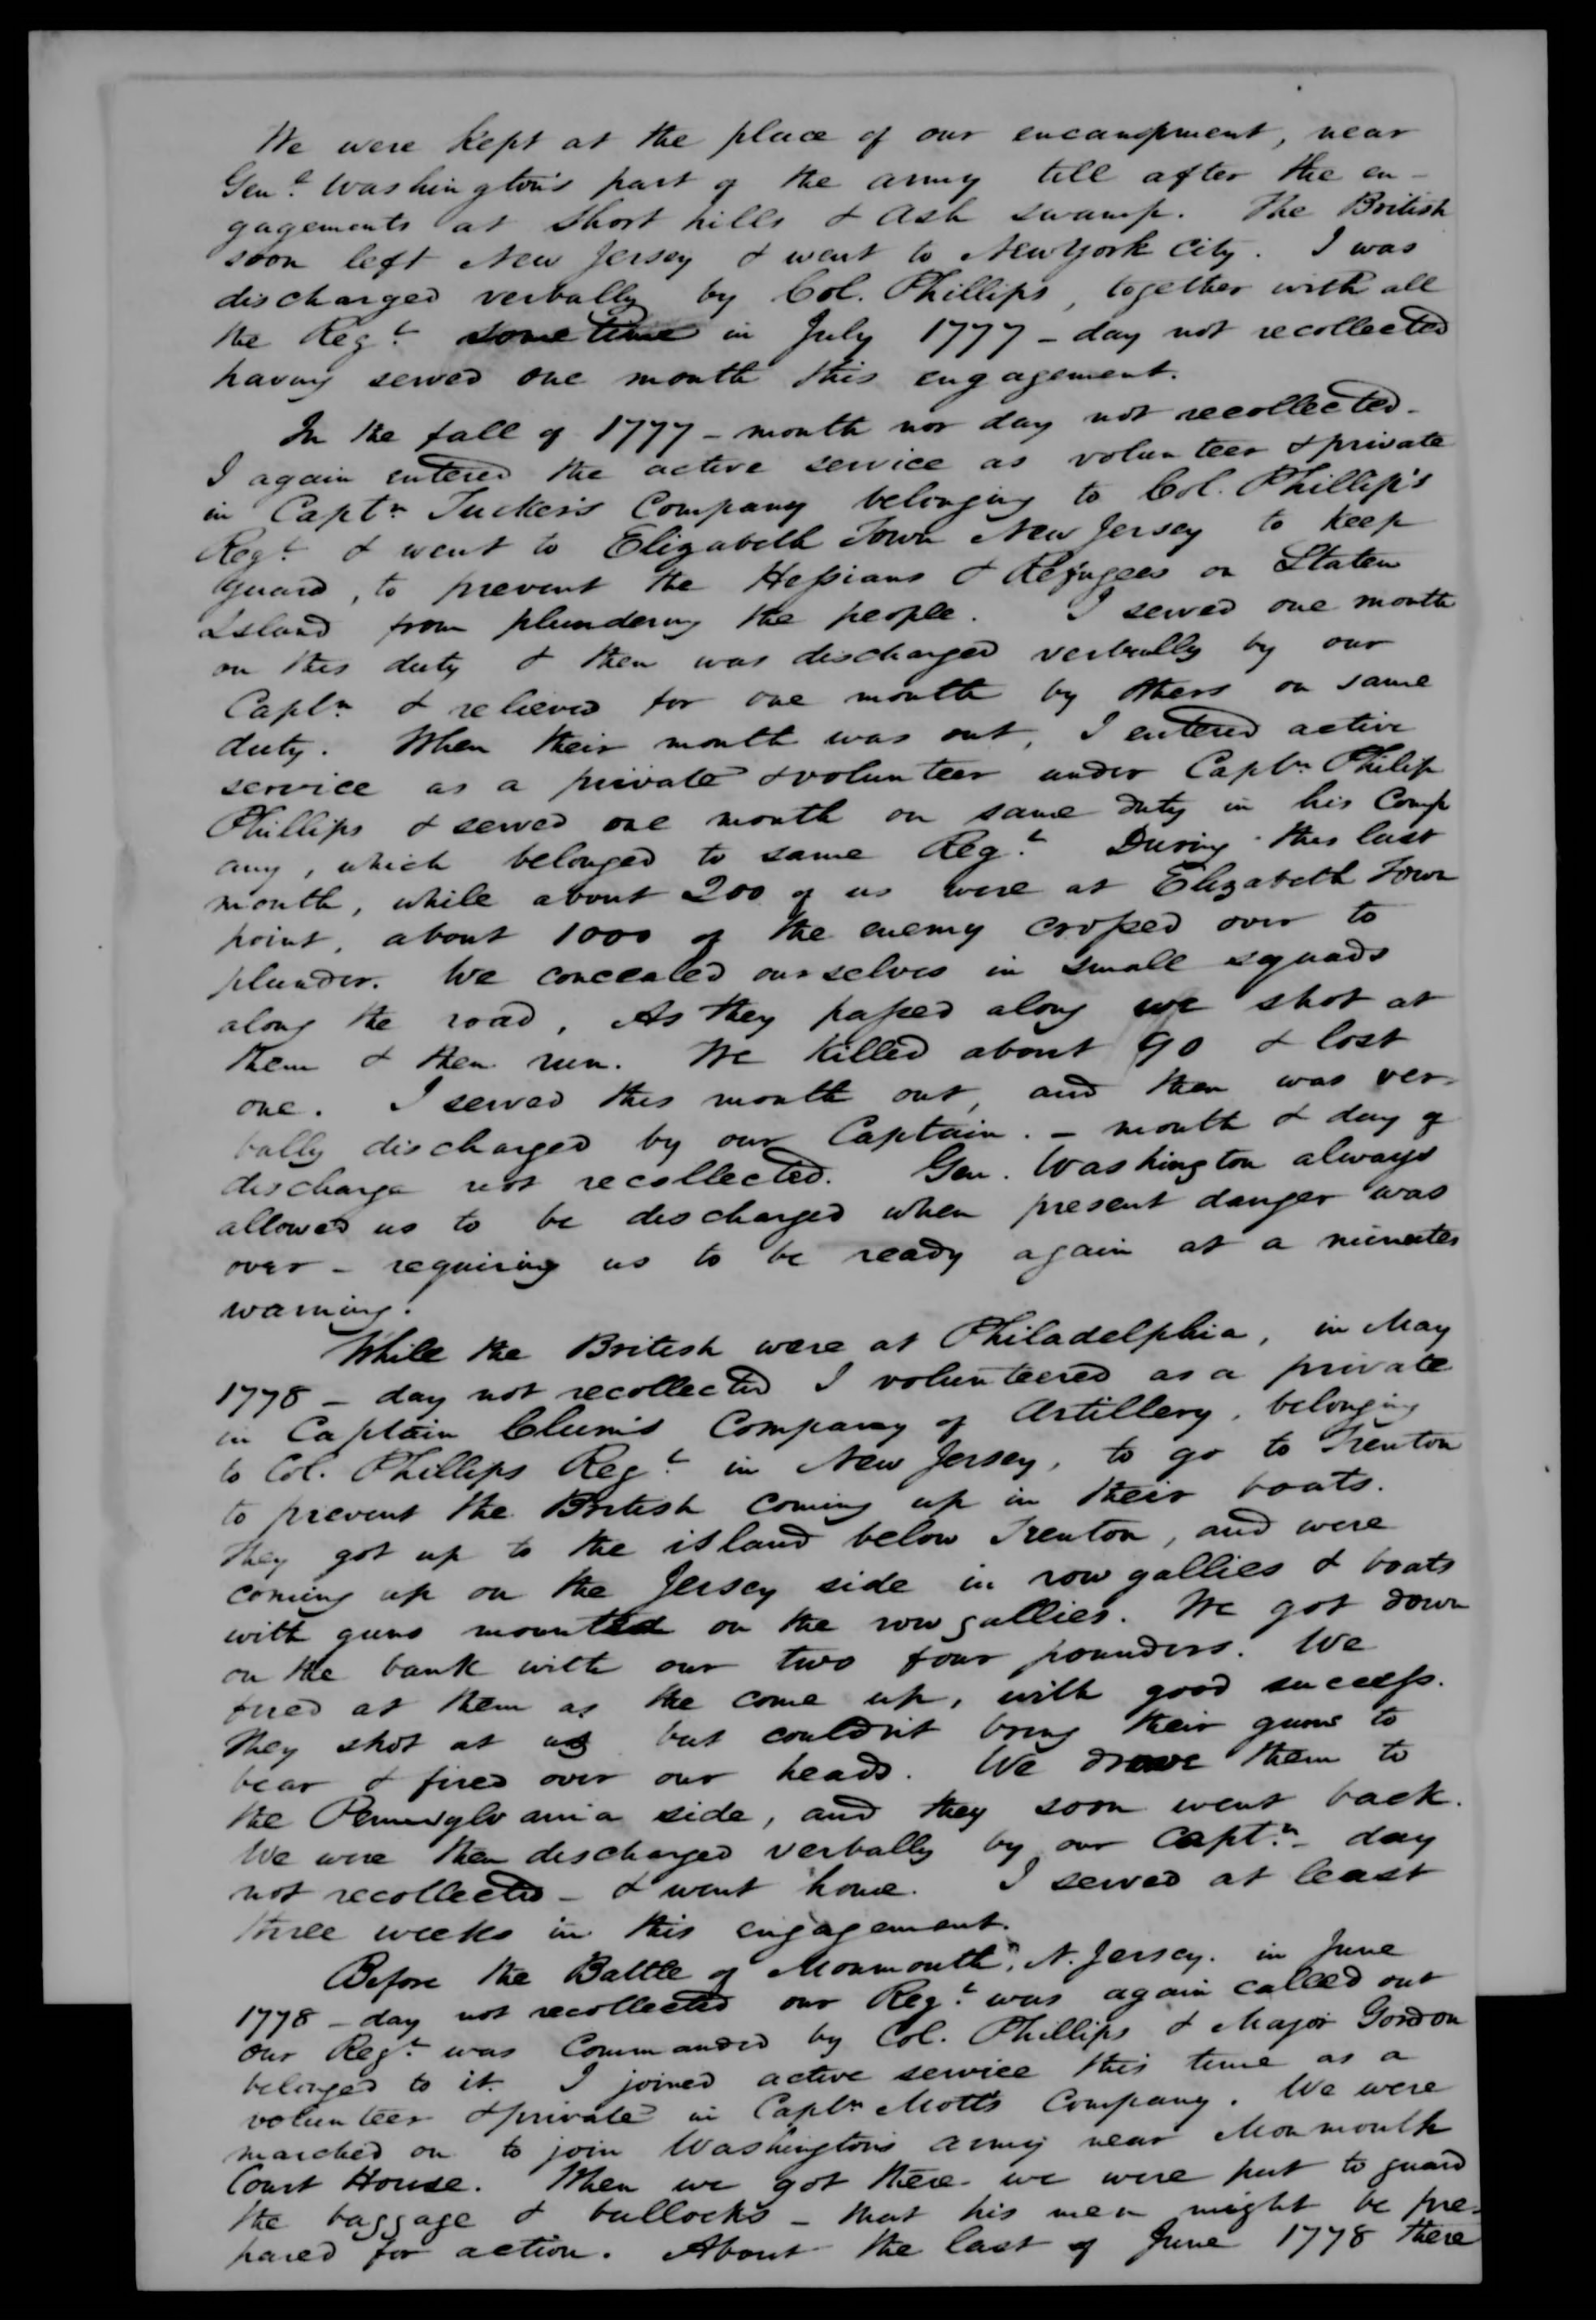 We were kept at the place of our encampment, near
Genl. Washington's part of the army till after the en-
gagements at Short hills & Ash swamp. The British
soon left New Jersey & went to New York City. I was
discharged verbally by Col. Phillips, together with all
the Regt. some time in July 1777 - day not recollected
having served one month this engagement.
In the fall of 1777 - month nor day not recollected -
I again entered the active service as volunteer & private
in Captn. Tucker's Company belonging to Col. Phillip's
Regt. & went to Elizabeth Town New Jersey to keep
guard, to prevent the Hessians & Refugees on Staten
Island from plundering the people. I served one month
on this duty & then was discharged verbally by our
Captn & relieved for one month by others on same
duty. When their month was out, I entered active
service as a private & volunteer under Captn Philip
Phillips & served one month on same duty in his Comp
any, which belonged to same Regt. During this last
month, while about 200 of us were at Elizabeth Town
point, about 1000 of the enemy crossed over to
plunder. We concealed ourselves in small squads
along the road, As they passed along we shot at
them & then run. We killed about 90 & lost
one. I served this month out, and then was ver-
bally discharged by our Captain. - month & day of
discharge not recollected. Gen. Washington always
allowed us to be discharged when present danger was
over - requiring us to be ready again at a minutes
warning.
While the British were at Philadelphia, in May
1778 - day not recollected I volunteered as a private
in Captain Clunn's Company of Artillery, belonging
to Col. Phillips Regt. in New Jersey, to go to Trenton
to prevent the British coming up in their boats.
They got up to the island below Trenton, and were
coming up on the Jersey side in row gallies & boats
with guns mounted on the row gallies. We got down
on the bank with our two four pounders. We
fired at them as the come up, with good success.
They shot at us but couldn't bring their guns to
bear & fired over our heads. We drove them to
the Pennsylvania side, and they soon went back.
We were then discharged verbally by our Captn. - day
not recollected - & went home. I served at least
three weeks in this engagement.
Before the Battle of Monmouth, N. Jersey. in June
1778 - day not recollected our Regt. was again called out
our Regt. was Commanded by Col. Phillips & Major Gordon
belonged to it. I joined active service this time as a
volunteer & private in Captn Mott's Company. We were
marched on to join Washington's army near Monmouth
Court House. When we got there we were put to guard
the baggage & bullocks - that his men might be pre-
pared for action. About the last of June 1778 there